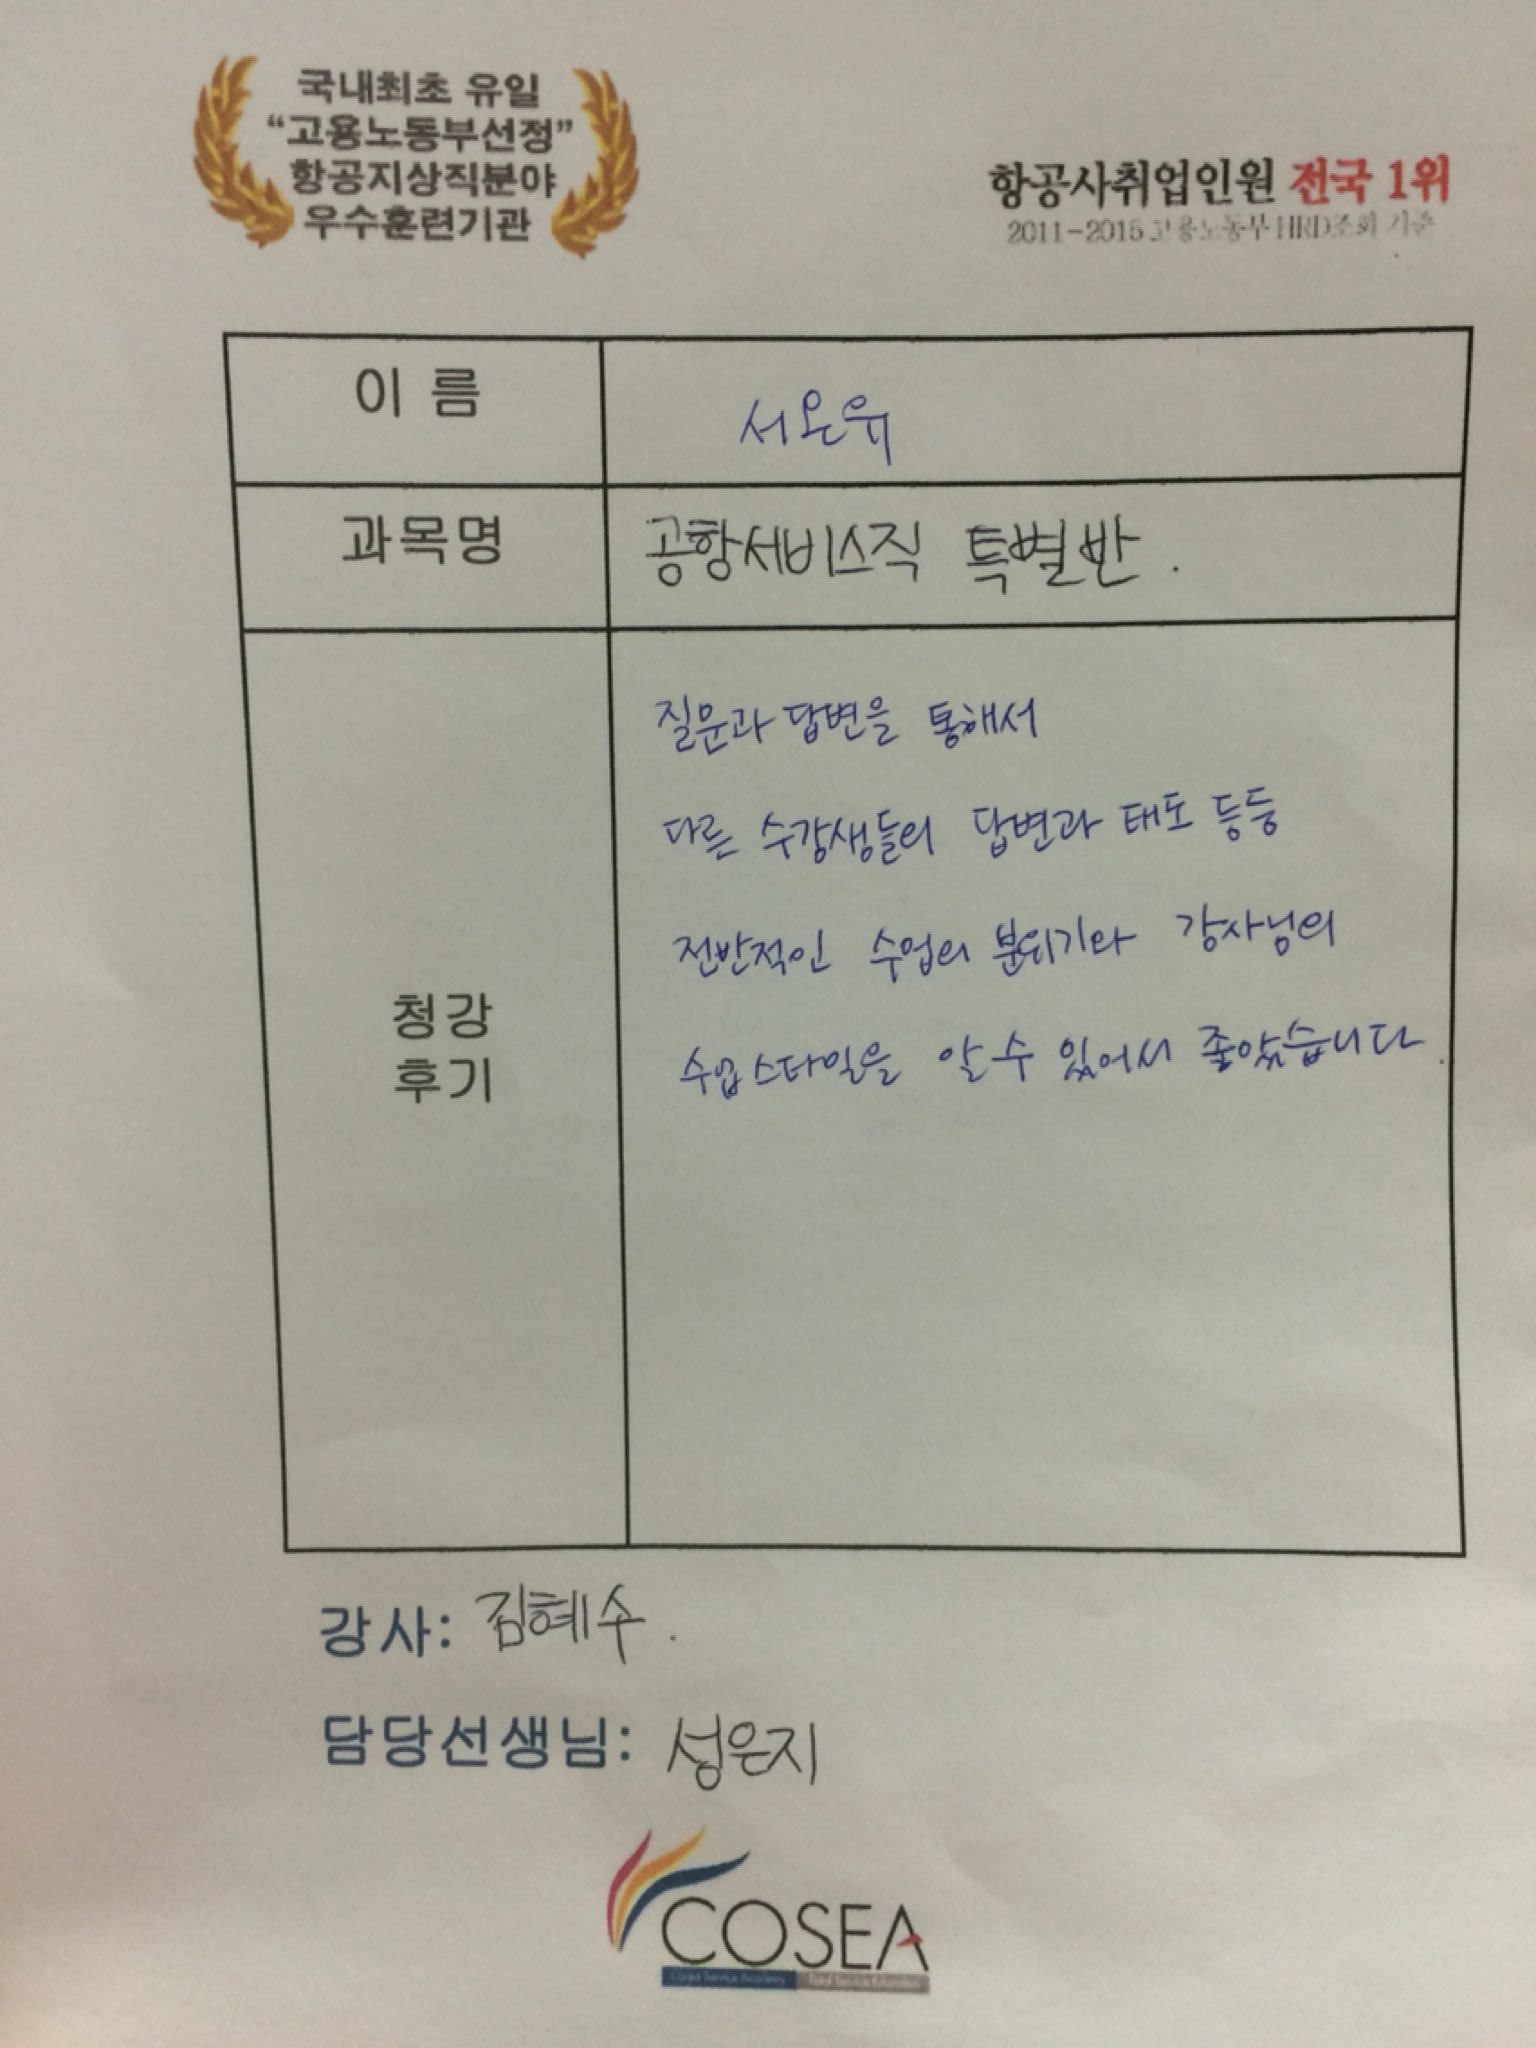 국내최초 유일
“고용노동부선정”
항공지상직분야
우수훈련기관
항공사취업인원 전국 1위
2011-2015 고용노동부 HRD조회 기준
이 름
서온유
과목명
공항서비스직 특별반.
청강
후기
질문과 답변을 통해서
다른 수강생들의 답변과 태도 등등
전반적인 수업의 분위기와 강사님의
수업스타일을 알 수 있어서 좋았습니다.
강사: 김혜수.
담당선생님: 성은지
COSEA
Service Academy Total Service Education